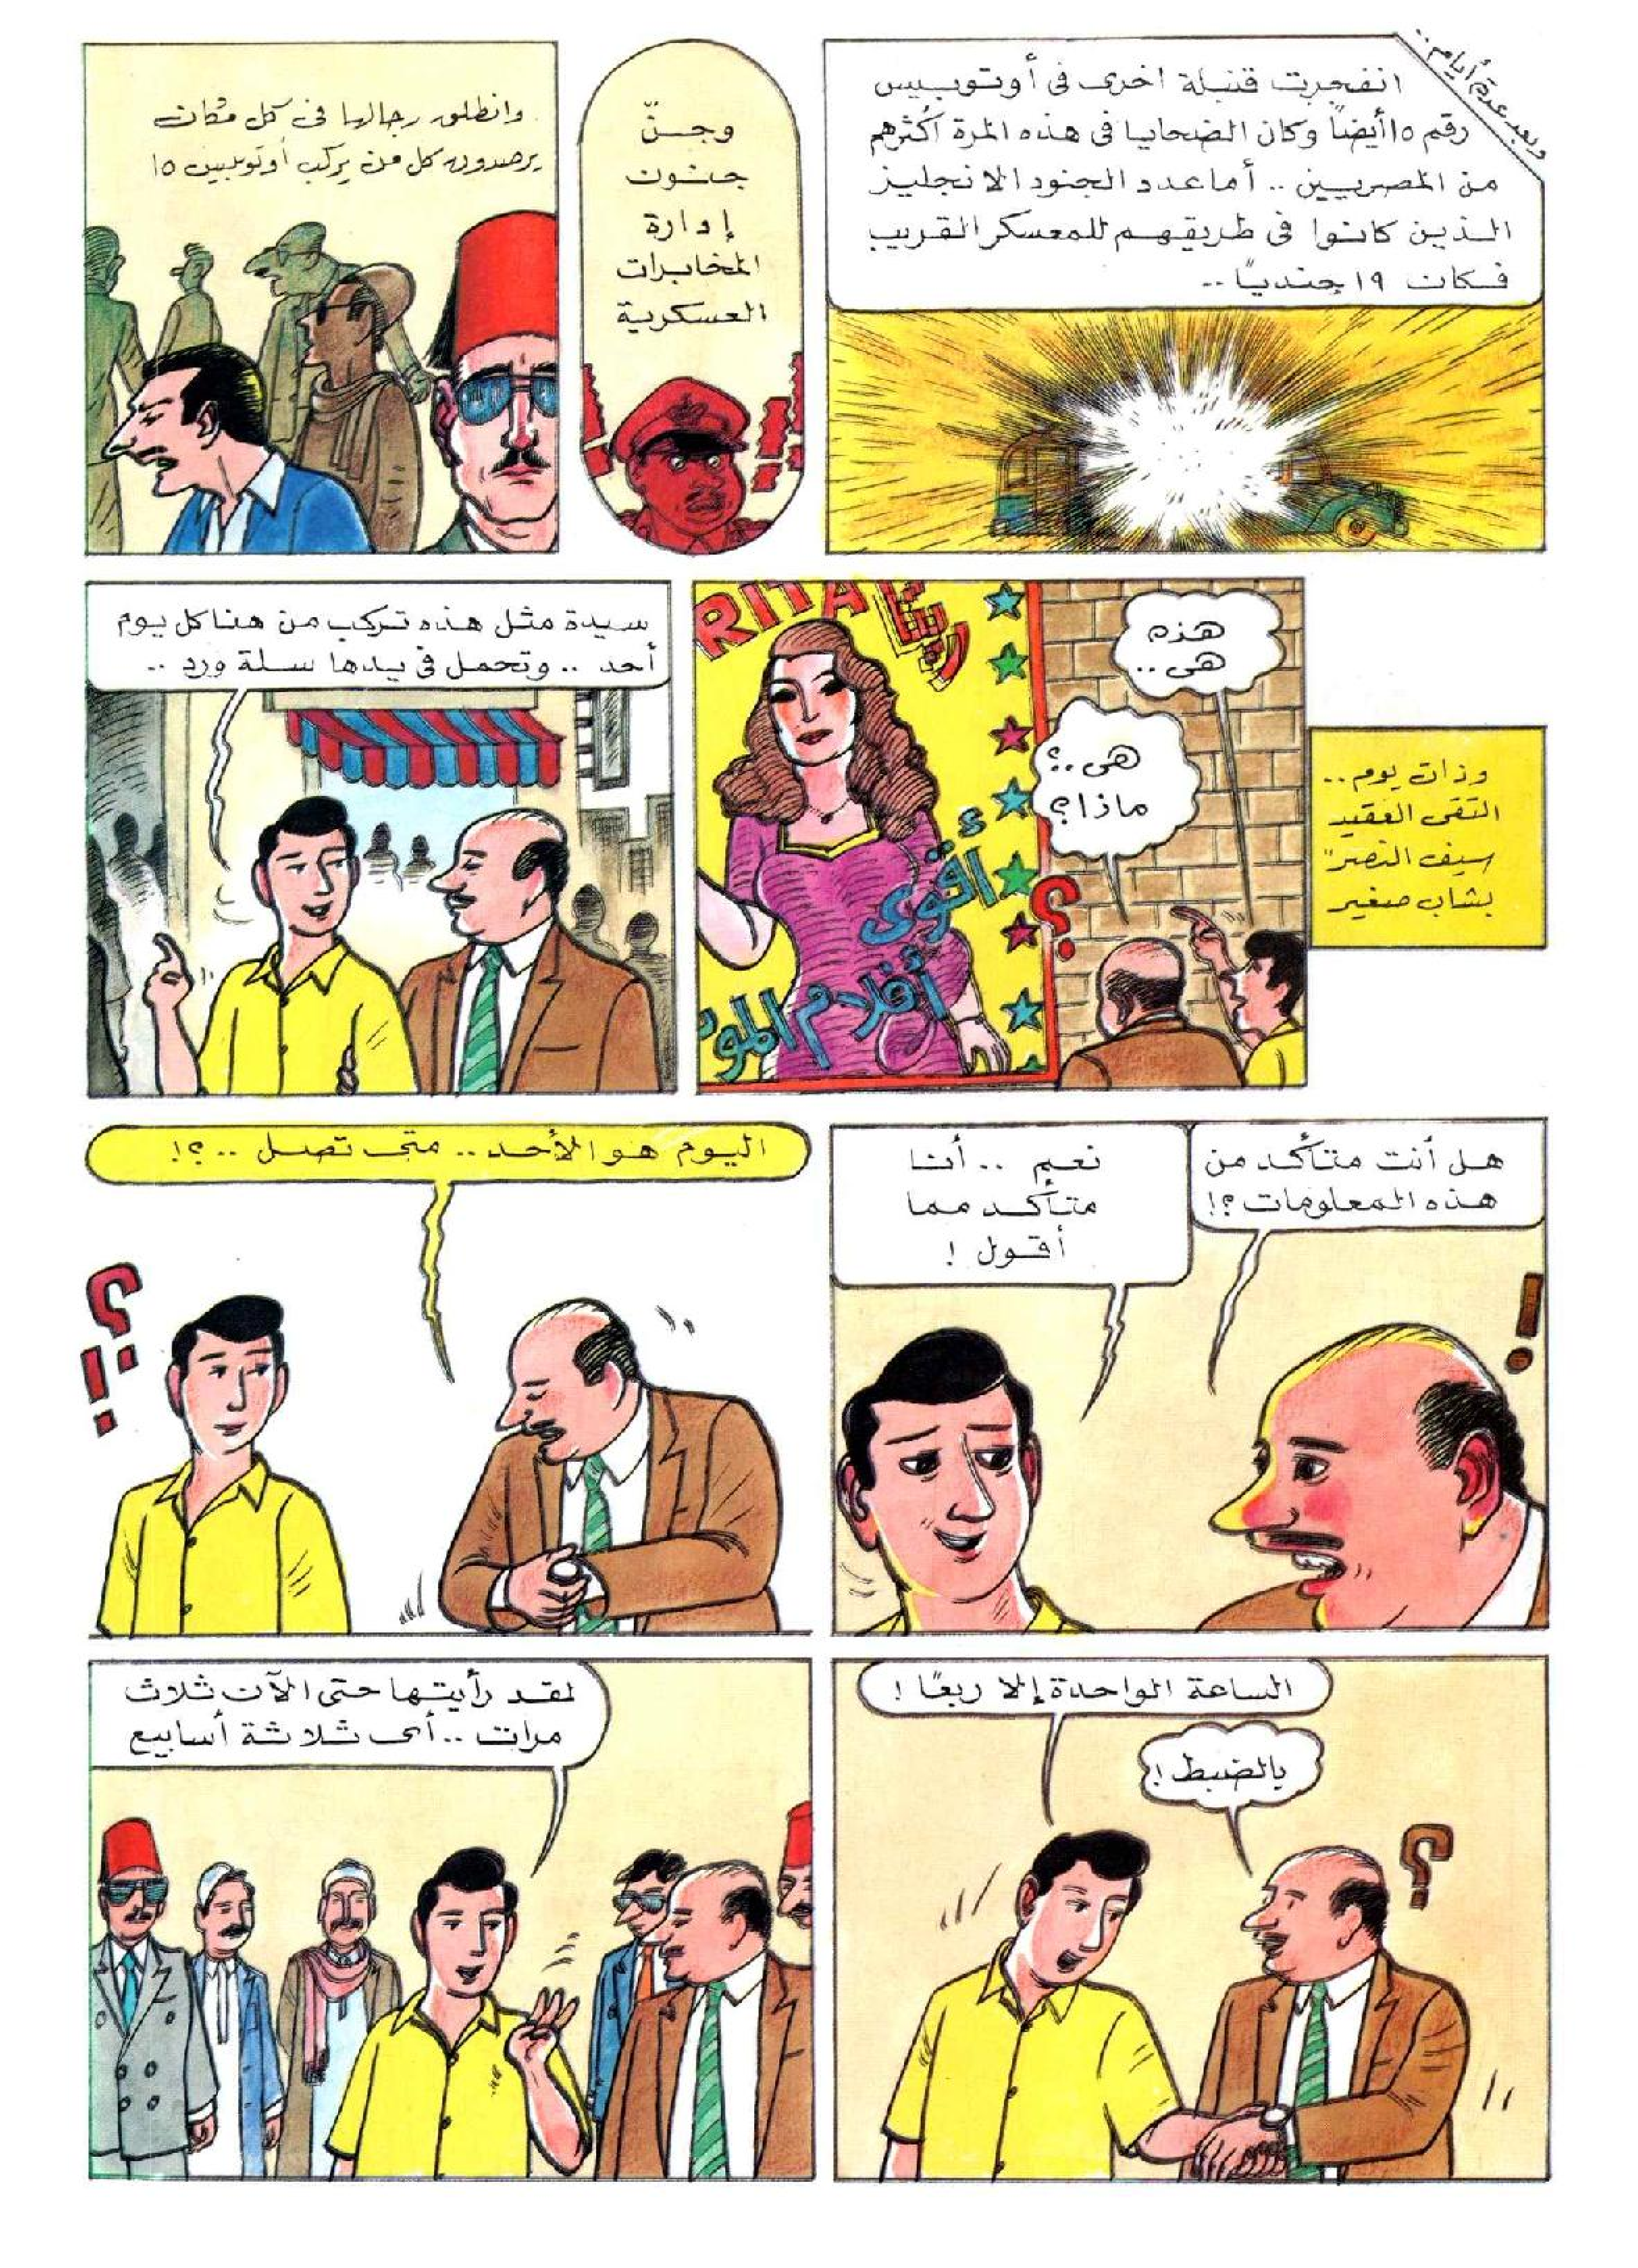 وبعد عدة أيام..
انفجرت قنبلة اخرى فى أوتوبيس
رقم ١٥ أيضاً وكان الضحايا فى هذه المرة أكثرهم
من المصريين .. أما عدد الجنود الانجليز
الذين كانوا فى طريقهم للمعسكر القريب
فكان ١٩ جندياً ..
وجنّ
جنون
إدارة
المخابرات
العسكرية
وانطلق رجالها فى كل مكان
يرصدون كل من يركب أوتوبيس ١٥
وذات يوم..
التقى العقيد
"سيف النصر"
بشاب صغير
هذه
هى ..
هى..؟
ماذا؟
RITA ريتا
أقوى
أفلام المو
؟
سيدة مثل هذه تركب من هنا كل يوم
أحد .. وتحمل فى يدها سلة ورد ..
هل أنت متأكد من
هذه المعلومات؟!
نعم .. أنا
متأكد مما
أقول !
!
اليوم هو الأحد.. متى تصل ..؟!
؟!
الساعة الواحدة إلا ربعًا !
بالضبط !
؟
لقد رأيتها حتى الآن ثلاث
مرات .. أى ثلاثة أسابيع